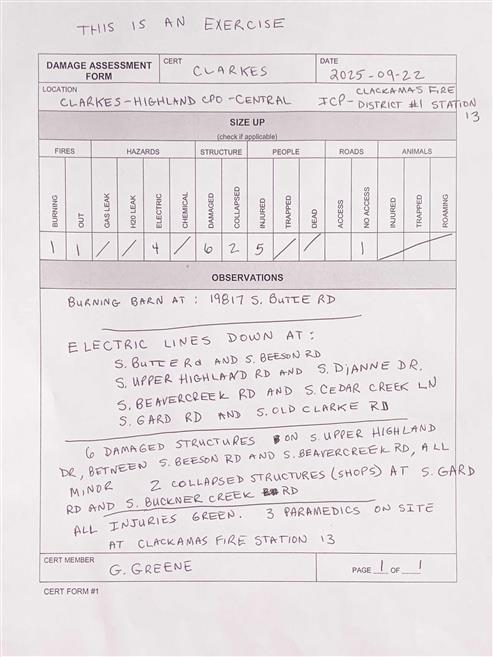 THIS IS AN EXERCISE
DAMAGE ASSESSMENT FORM
CERT
CLARKES
DATE
2025-09-22
LOCATION
CLARKES-HIGHLAND CPO-CENTRAL
ICP- CLACKAMAS FIRE DISTRICT #1 STATION 13
SIZE UP
(check if applicable)
FIRES HAZARDS STRUCTURE PEOPLE ROADS ANIMALS
BURNING OUT GAS LEAK H20 LEAK ELECTRIC CHEMICAL DAMAGED COLLAPSED INJURED TRAPPED DEAD ACCESS NO ACCESS INJURED TRAPPED ROAMING
1 1 / / 4 / 6 2 5 / / 1 /
OBSERVATIONS
BURNING BARN AT: 19817 S. BUTTE RD
ELECTRIC LINES DOWN AT:
S. BUTTE Rd AND S. BEESON RD
S. UPPER HIGHLAND RD AND S. DiANNE DR.
S. BEAVERCREEK RD AND S. CEDAR CREEK LN
S. GARD RD AND S. OLD CLARKE RD
6 DAMAGED STRUCTURES ON S. UPPER HIGHLAND
DR, BETWEEN S. BEESON RD AND S. BEAVERCREEK RD, ALL
MINOR 2 COLLAPSED STRUCTURES (SHOPS) AT S. GARD
RD AND S. BUCKNER CREEK RD
ALL INJURIES GREEN. 3 PARAMEDICS ON SITE
AT CLACKAMAS FIRE STATION 13
CERT MEMBER
G. GREENE
PAGE 1 OF 1
CERT FORM #1